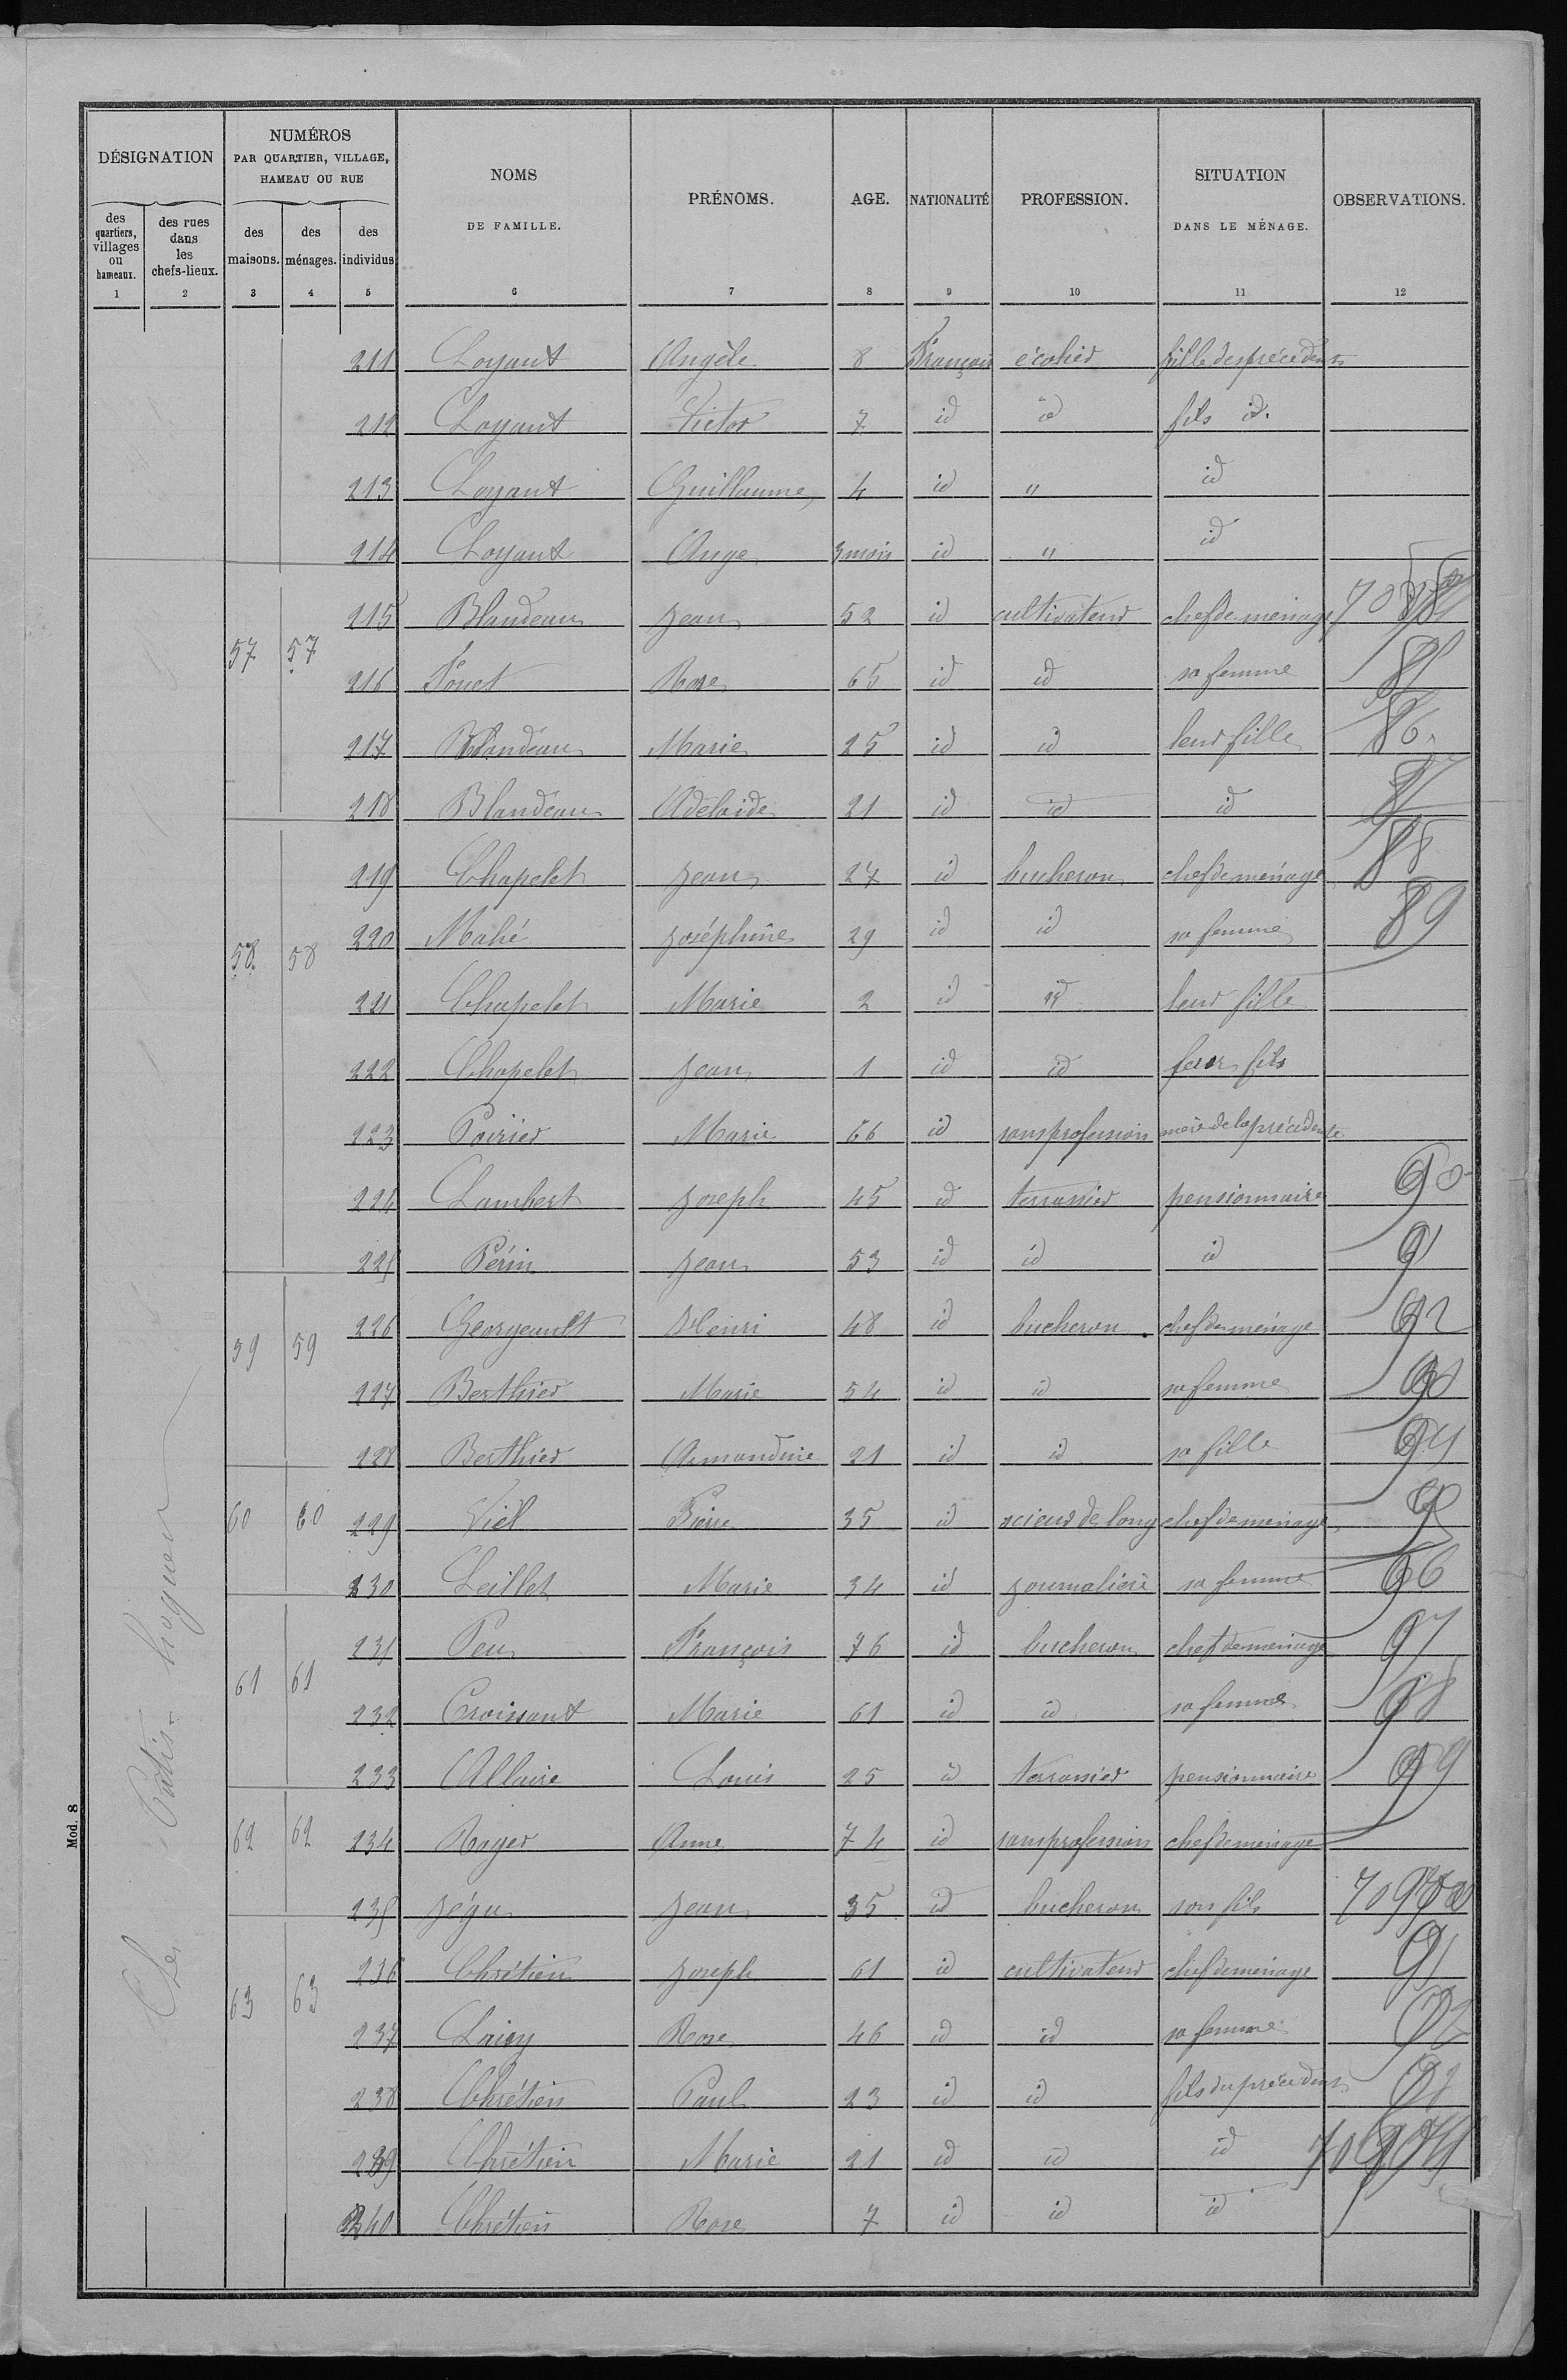 DÉSIGNATION
NUMÉROS
PAR QUARTIER, VILLAGE,
HAMEAU OU RUE
NOMS
DE FAMILLE.
PRÉNOMS.
AGE.
NATIONALITÉ
PROFESSION.
SITUATION
DANS LE MÉNAGE.
OBSERVATIONS.
des quartiers, villages ou hameaux.
des rues dans les chefs-lieux.
des maisons.
des ménages.
des individus
1 2 3 4 5 6 7 8 9 10 11 12
211 Loyant Angèle 8 Français écolier fille des précédents
212 Loyant Victor 7 id id fils id.
213 Loyant Guillaume 4 id " id
214 Loyant Ange 3 mois id " id
57 57
215 Blandeau Jean 52 id cultivateur chef de ménage
216 Rose 65 id id sa femme 85
217 Blandeau Marie 25 id id leur fille 86
218 Blandeau Adélaide 21 id id id 87
58 58
219 Chapelet Jean 27 id bucheron chef de ménage 88
220 Mahé Joséphine 29 id id sa femme 89
221 Chapelet Marie 2 id id leur fille
222 Chapelet Jean 1 id id fils
223 Poirier Marie 66 id sans profession mère de la précédente
224 Lambert Joseph 45 id terrassier pensionnaire 90
225 Périn Jean 53 id id id 91
59 59
226 Georgeault Henri 48 id bucheron chef de ménage 92
227 Berthier Marie 54 id id sa femme
228 Berthier Amandine 21 id id sa fille 94
60 60
229 Viel Pierre 35 id scieur de long chef de ménage 95
230 Leillet Marie 34 id journalière sa femme 96
61 61
231 Peu François 76 id bucheron chef de ménage 97
232 Croissant Marie 61 id id sa femme 98
233 Allaire Louis 25 id terrassier pensionnaire 99
62 62
234 Royer Anne 74 id sans profession chef de ménage
235 Jégu Jean 35 id bucheron son fils
63 63
236 Chrétien Joseph 61 id cultivateur chef de ménage
237 Rose 46 id id sa femme
238 Chrétien Paul 23 id id fils du précédent
239 Chrétien Marie 21 id id id
240 Chrétien Rose 7 id id id
Mod. 8